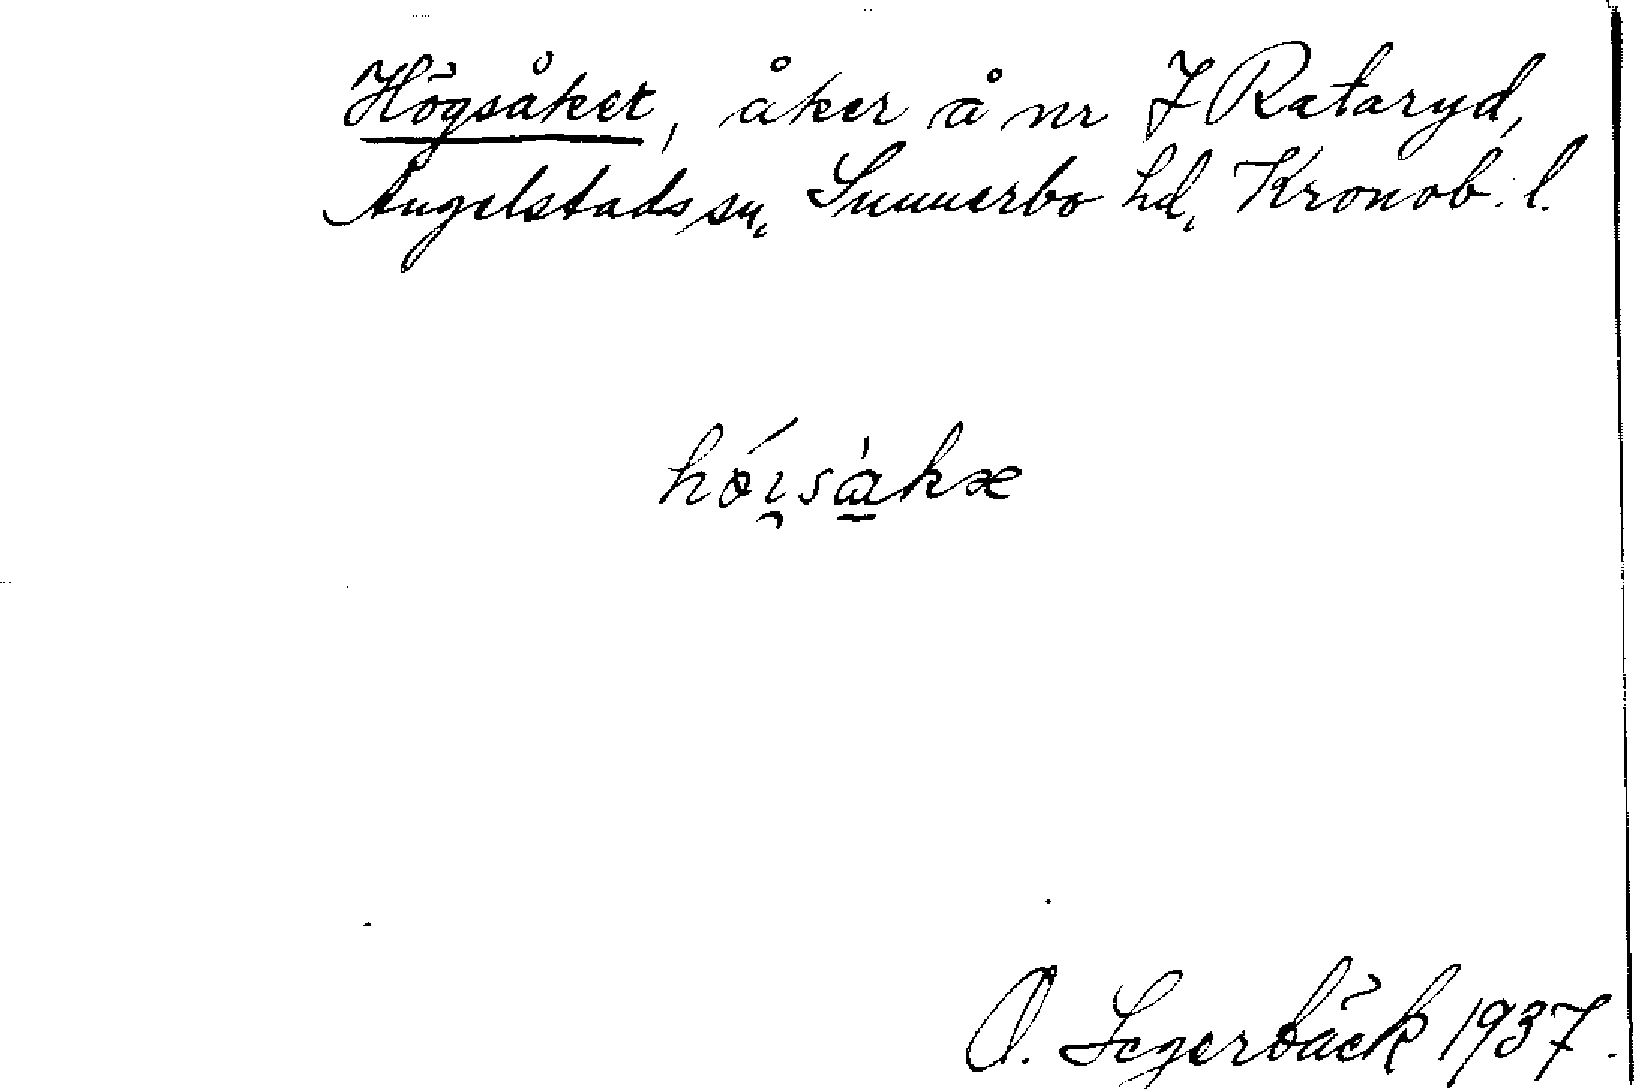 Högsåket, åker å nr 7 Rataryd,
Angelstads sn, Sunnerbo hd, Kronob. l.
hö́i̯såkæ
O. Segerbäck 1937.